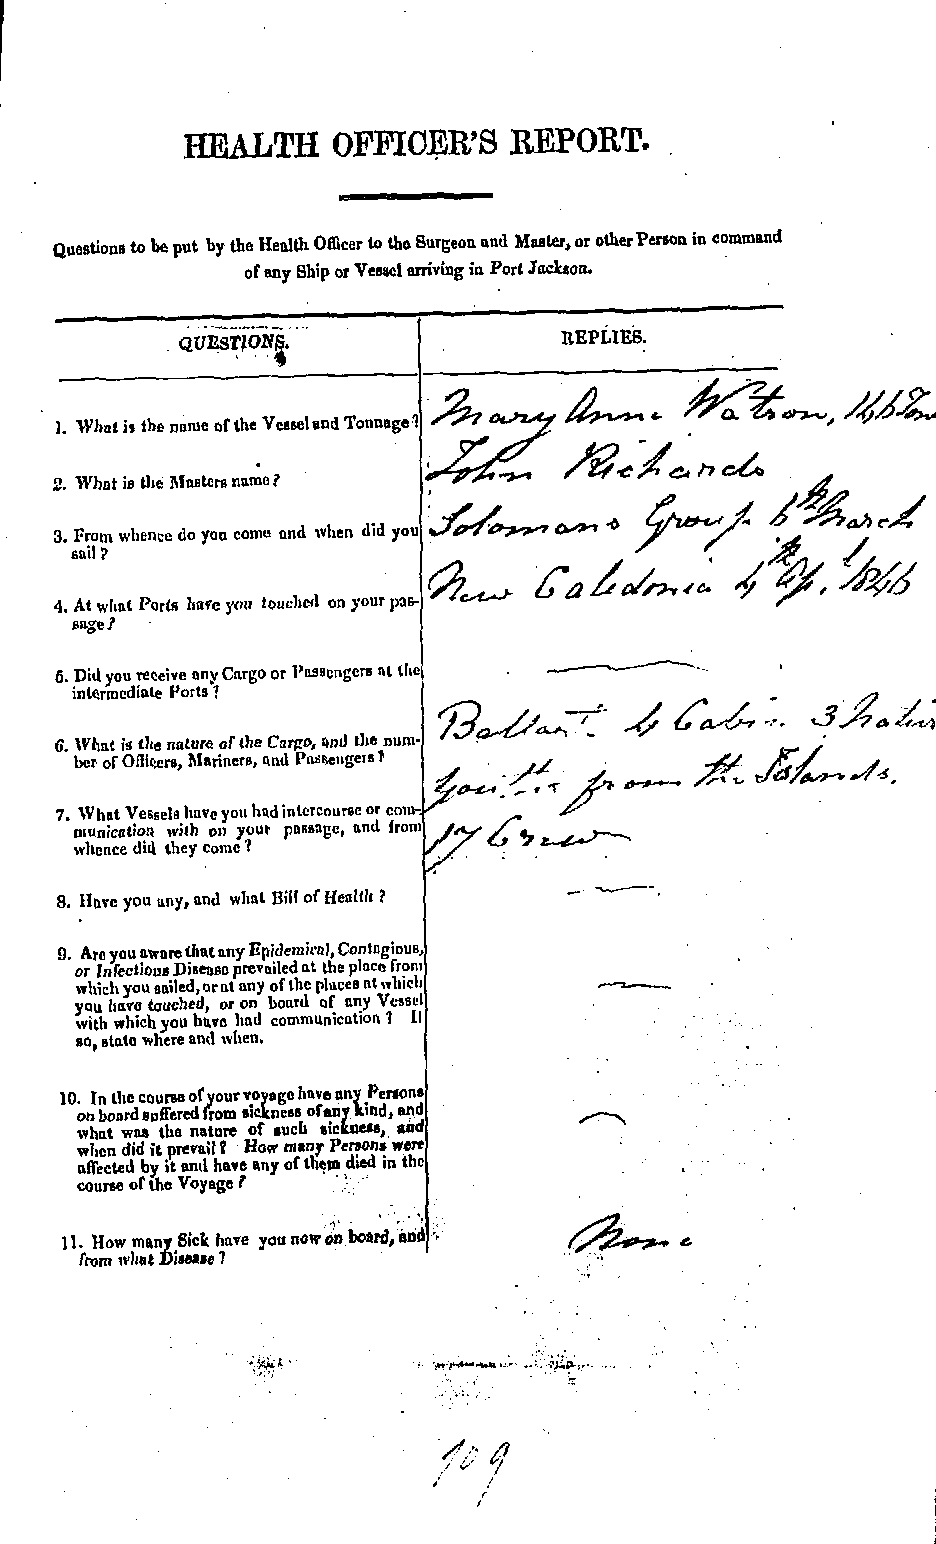 HEALTH OFFICER'S REPORT.
Questions to be put by the Health Officer to the Surgeon and Master, or other Person in command
of any Ship or Vessel arriving in Port Jackson.
QUESTIONS.
REPLIES.
1. What is the name of the Vessel and Tonnage?
Mary Anne Watson, 146 Ton
2. What is the Masters name?
John Richards
3. From whence do you come and when did you
sail?
Solomans Group. 6th March
4. At what Ports have you touched on your pas-
sage?
New Caledonia 4th Apl. 1846
5. Did you receive any Cargo or Passengers at the
intermediate Ports?
6. What is the nature of the Cargo, and the num-
ber of Officers, Mariners, and Passengers?
Ballast. 4 Cabin. 3 Nativ
from the Islands.
17 Crew
7. What Vessels have you had intercourse or com-
munication with on your passage, and from
whence did they come?
8. Have you any, and what Bill of Health?
9. Are you aware that any Epidemical, Contagious,
or Infectious Disease prevailed at the place from
which you sailed, or at any of the places at which
you have touched, or on board of any Vessel
with which you have had communication? If
so, state where and when.
10. In the course of your voyage have any Persons
on board suffered from sickness of any kind, and
what was the nature of such sickness, and
when did it prevail? How many Persons were
affected by it and have any of them died in the
course of the Voyage?
11. How many Sick have you now on board, and
from what Disease?
None
109